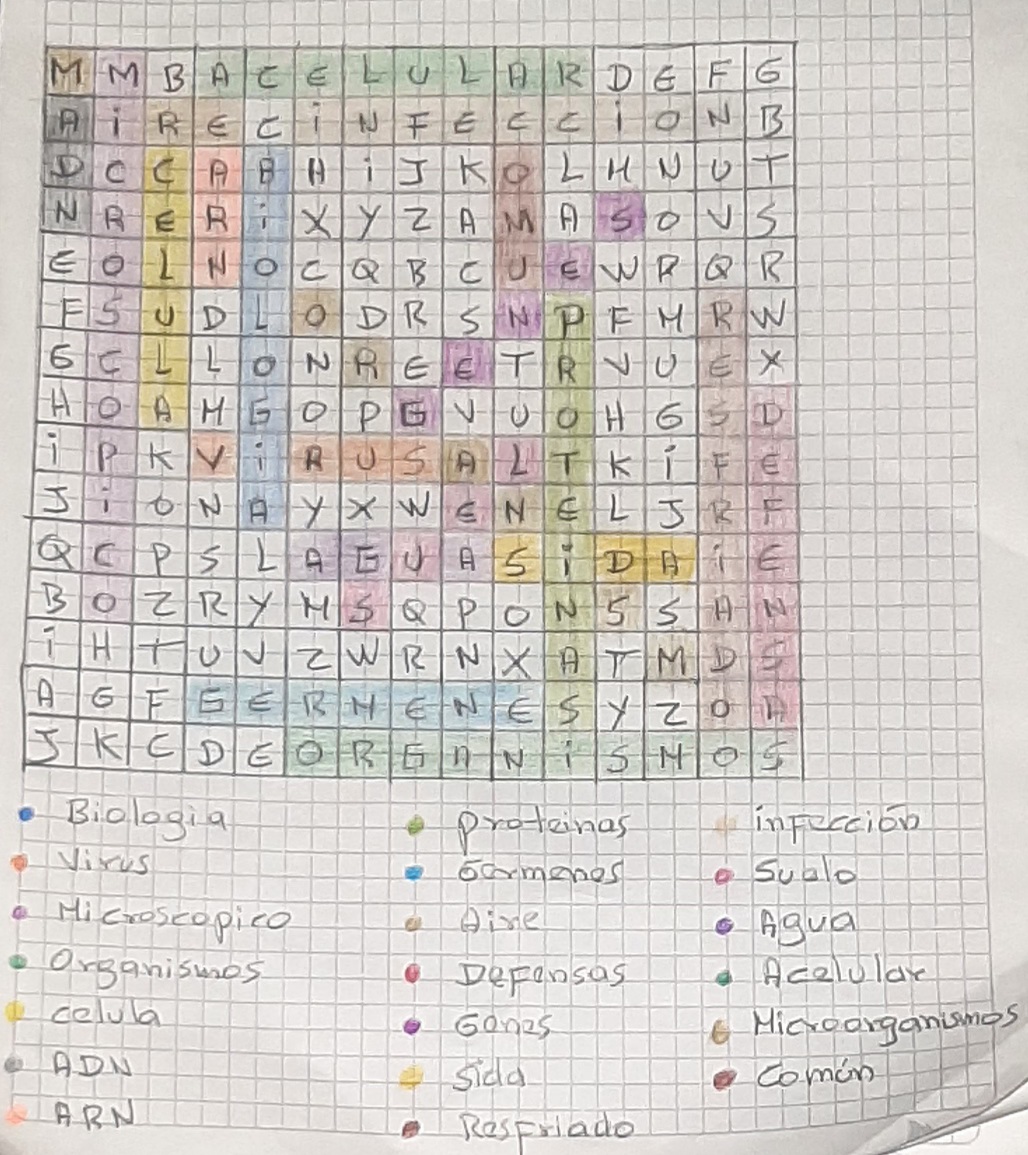 M M B A C E L U L A R D E F G
A i R E C i N F E C C i O N B
D C C A B H i J K O L H N U T
N R E R i X Y Z A M A S O V S
E O L N O C Q B C U E W P Q R
F S U D L O D R S N P F M R W
G C L L O N R E E T R V U E X
H O A M G O P G V U O H G S D
i P K V i R U S A L T K i F E
J i O N A Y X W E N E L J R F
Q C P S L A G U A S i D A i E
B O Z R Y M S Q P O N S S A N
i H T U V Z W R N X A T M D S
A G F G E R M E N E S Y Z O A
J K C D E O R G A N i S M O S
Biologia proteinas infección
Virus Germenes Suelo
Microscopico Aire Agua
Organismos Defensas Acelular
celula Genes Microorganismos
ADN Sida Común
ARN Resfriado